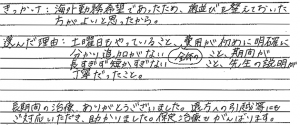 きっかけ：海外勤務希望であったため、歯並びを整えておいた
方がよいと思ったから。
選んだ理由：土曜日もやっていること、費用が初めに明確に
分かり追加がないこと、期間が
長すぎず短かすぎないこと、先生の説明が
丁寧だったこと。
長期間の治療、ありがとうございました。遠方への引越等にも
ご対応いただき、助かりました。保定治療もがんばります。